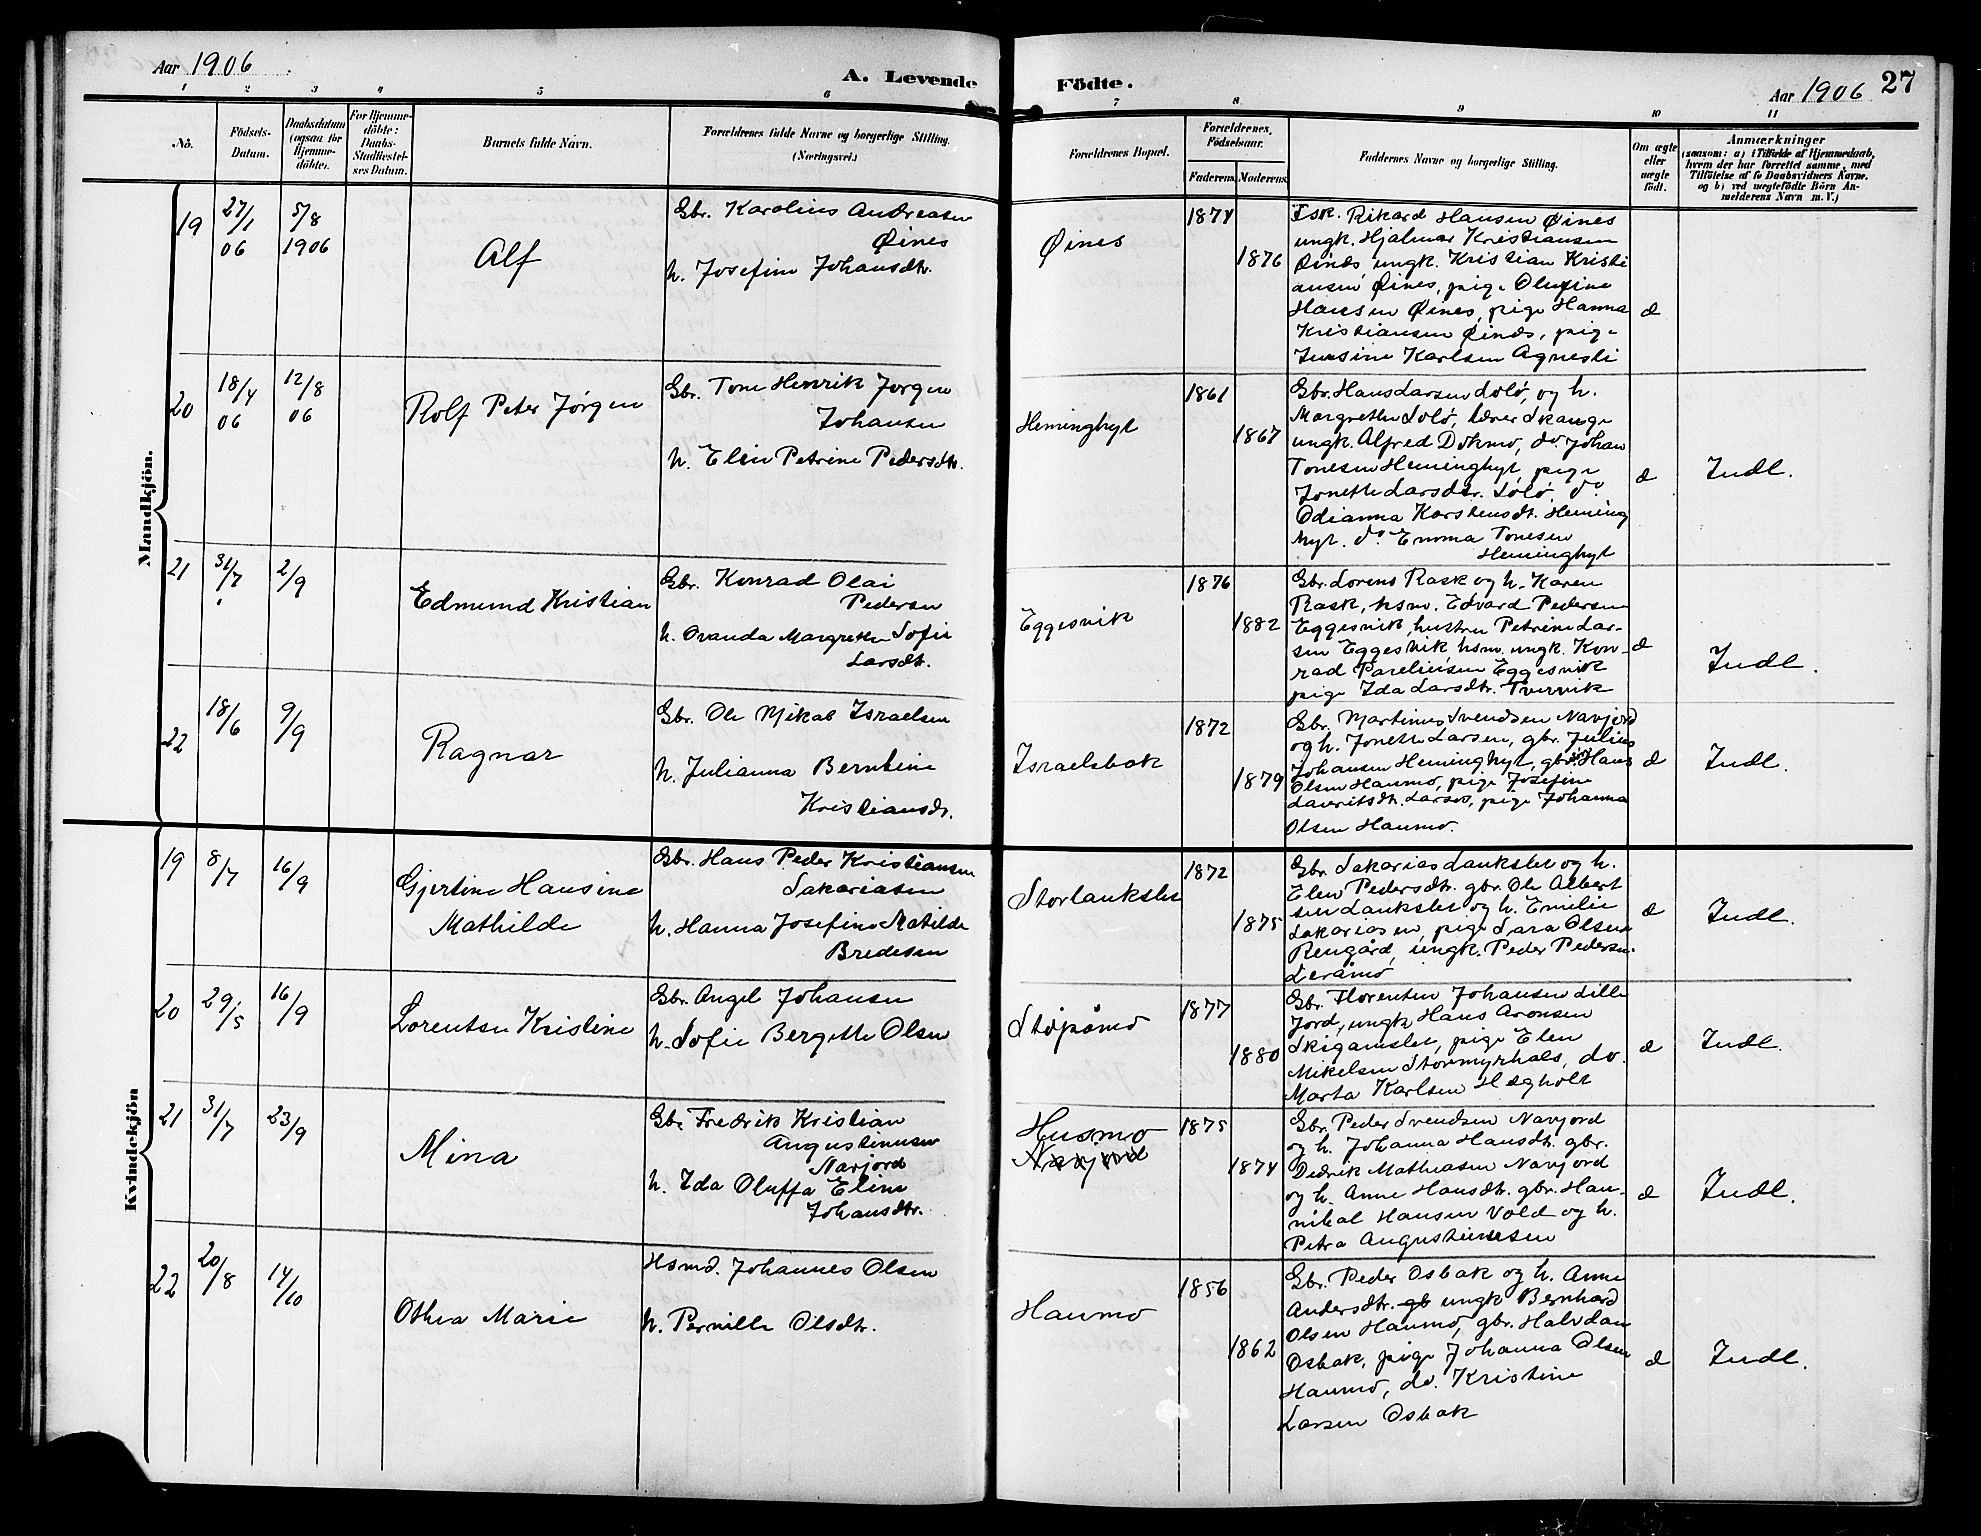 Aar 1906.
A. Levende
Födte.
Aar 1906
27
1 2 3 4 5 6 7 8 9 10 11
No.
Födsels-
Datum.
Daabsdatum
(ogsaa for
Hjemme-
döbte).
For Hjemme-
döbte:
Daabs-
Stadfestel-
ses Datum.
Barnets fulde Navn.
Forældrenes fulde Navne og borgerlige Stilling.
(Næringsvei.)
Forældrenes Bopæl.
Forældrenes
Födselsaar.
Faderens
Moderens
Faddernes Navne og borgerlige Stilling.
Om ægte
eller
uægte
födt.
Anmærkninger
(saasom: a) i Tilfælde af Hjemmedaab,
hvem der har forrettet samme, med
Tilföielse af to Daabsvidners Navne,
og b) ved uægtefödte Börn An-
melderens Navn m. V.)
Mandkjön.
19
27/1
06
5/8
1906
Alf
Gbr. Karolius Andreasen
Øines
h. Josefine Johansdtr.
Øines
1874
1876
Fsk. Rikard Hansen Øines
ungk. Hjalmar Kristiansen
Øines, ungk. Kristian Kristi
ansen Øines, pige Olufine
Hansen Øines, pige Hanna
Kristiansen Øines, pige
Jensine Karlsen Agnesli
æ
20
18/4
06
12/8
06
Rolf Peter Jørgen
Gbr. Tone Henrik Jørgen
Johansen
h. Elen Petrine Pedersdtr.
Heminghyt
1861
1867
Gbr. Hans Larsen Solø, og h.
Margrethe Solø, lærer Skauge
ungk. Alfred Dokmo, do. Johan
Tonesen Heminghyt, pige
Jonette Larsdtr. Solø, do
Odianna Karstensdt. Heming
hyt. do Emma Tonesen
Heminghyt
æ
Indl.
21
31/7
2/9
Edmund Kristian
Gbr. Konrad Olai
Pedersen
h. Ovanda Margrethe Sofie
Larsdt.
Eggesvik
1876
1882
Gbr. Lorens Rask og h. Karen
Rask, hsm. Edvard Pedersen
Eggesvik, hustru Petrine Lar-
sen Eggesvik, hsm. ungk. Kon-
rad Pareliusen Eggesvik
pige Ida Larsdtr. Tverrvik
æ
Indl.
22
18/6
9/9
Ragnar
Gbr. Ole Mikal Israelsen
h. Julianna Berntine
Kristiansdt.
Israelsbak
1872
1879
Gbr. Martinus Svendsen Navjord
og h. Jonette Larsen, gbr. Julius
Johansen Heminghyt, gbr. Hans
Olsen Haumo, pige Josefine
Lauritsdt. Larsos, pige Johanna
Olsen Haumo.
æ
Indl.
Kvindekjön
19
8/7
16/9
Gjertine Hansine
Mathilde
Gbr. Hans Peder Kristiansen
Sakariasen
h. Hanna Josefine Matilde
Bredesen
Storlaukslet
1872
1875
Gbr. Sakarias Laukslet og h.
Elen Pedersdtr. gbr. Ole Albert
sen Laukslet og h. Emilie
Sakariasen, pige Sara Olsen
Rengård, ungk. Peder Pedersen
Leråmo
æ
Indl.
20
29/5
16/9
Lorentse Kristine
Gbr. Angel Johansen
h. Sofie Bergitte Olsen
Støpåmo
1877
1880
Gbr. Florentin Johansen Lille
Jord, ungk. Hans Aronsen
Skigamslet, pige Elen
Mikelsen Stormyrhals, do.
Marta Karlsen Hægholt
æ
Indl.
21
31/7
23/9
Mina
Gbr Fredrik Kristian
Augustinusen
Navjord
h. Ida Oluffa Eline
Johansdtr.
Husmo
Navjord
1875
1874
Gbr. Peder Svendsen Navjord
og h. Johanna Hansdt. gbr.
Didrik Mathiasen Navjord
og h. Anne Hansdt. gbr. Han-
nibal Hansen Vold og h.
Petra Augustinusen
æ
Indl.
22
20/8
14/10
Othea Marie
Hsmd. Johannes Olsen
h. Pernille Olsdtr.
Haumo
1856
1862
Gbr. Peder Osbak og h. Anne
Andersdtr. gb ungk Bernhard
Olsen Haumo, gbr. Halvdan
Osbak, pige Johanna Olsen
Haumo, do. Kristine
Larsen Osbak
æ
Indl.